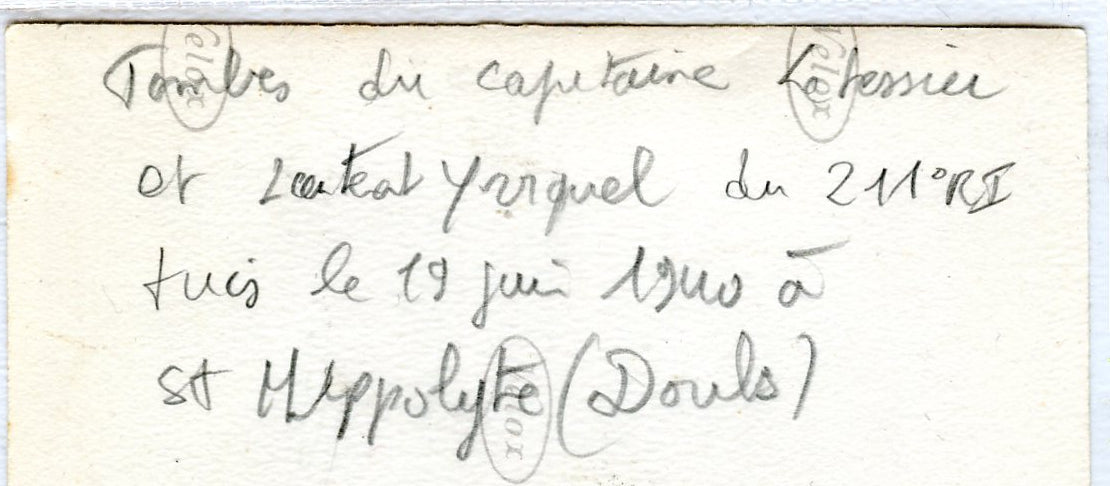 Tombes du capitaine
et du 211° RI
tués le 19 juin 1940 à
St Hippolyte (Doubs)
Velox
Velox
Velox